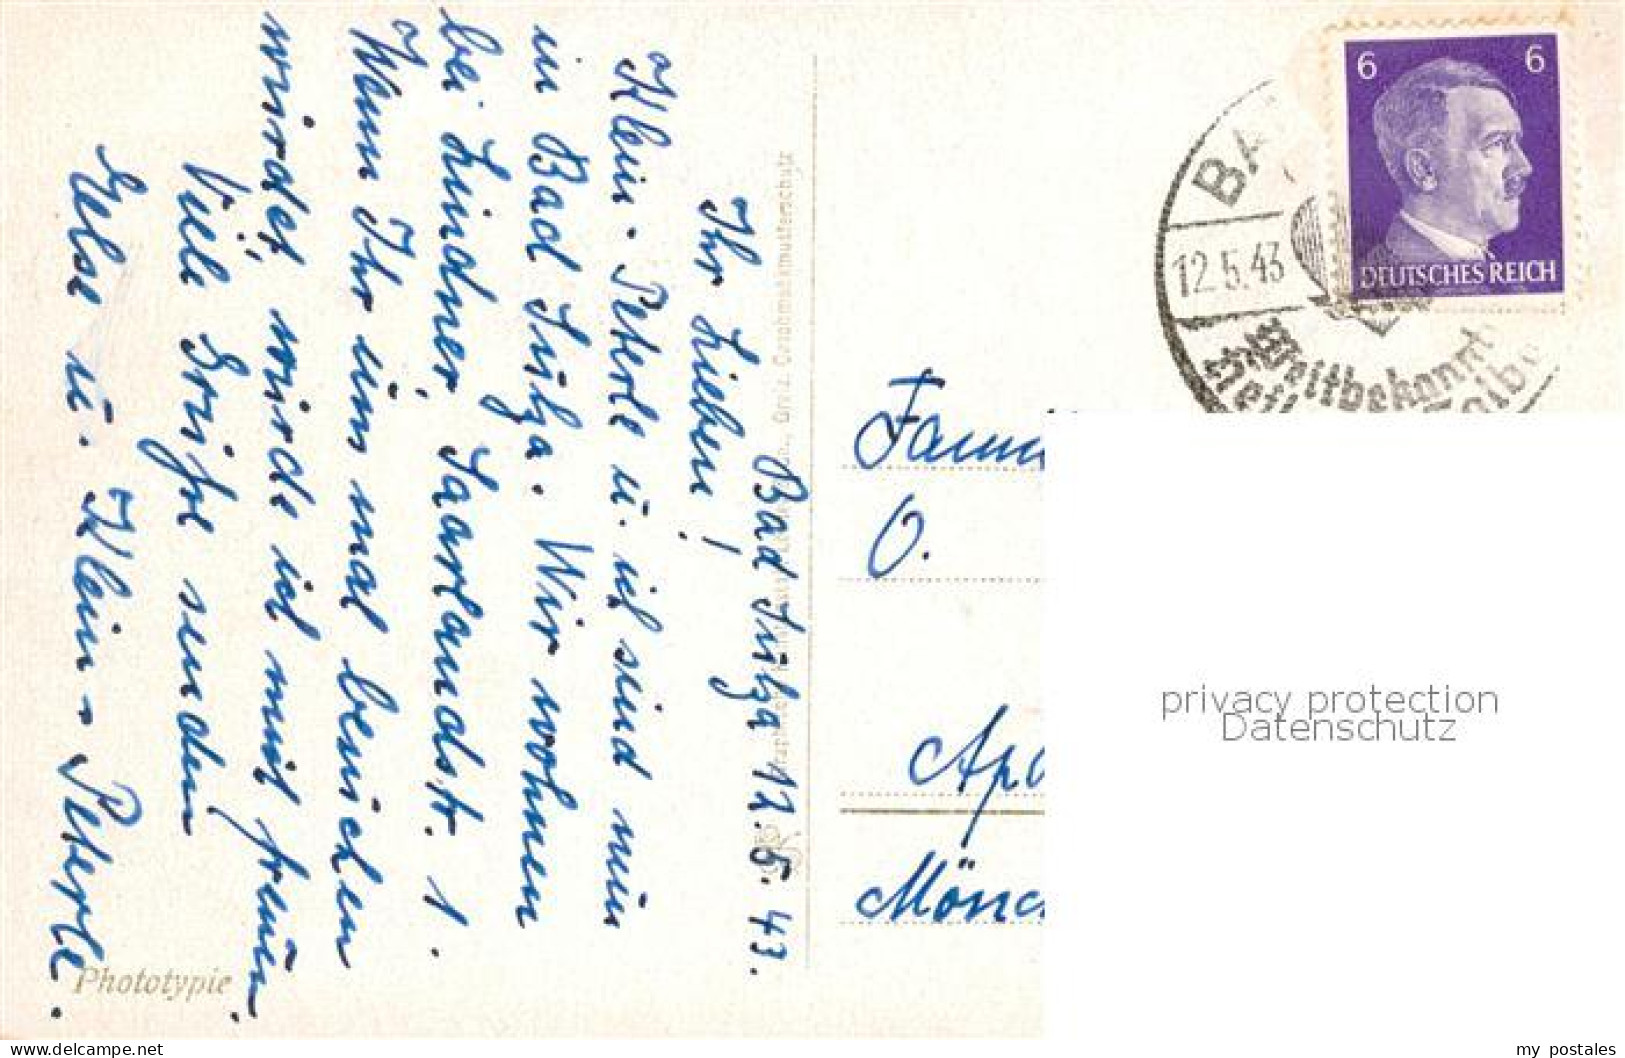 Bad Sulza 12.5.43.
Ihr Lieben!
Klein-Peterle u. ich sind nun
in Bad Sulza. Wir wohnen
bei Lindner, Saarlandstr. 1.
Wenn Ihr uns mal besuchen
würdet, würde ich mich freuen.
Viele Grüße senden
Else u. Klein-Peterle.
Phototypie
6 6
DEUTSCHES REICH
BA
12.5.43
Weltbekannt
Fam
O.
Apo
Mönc
privacy protection
Datenschutz
www.delcampe.net
my_postales